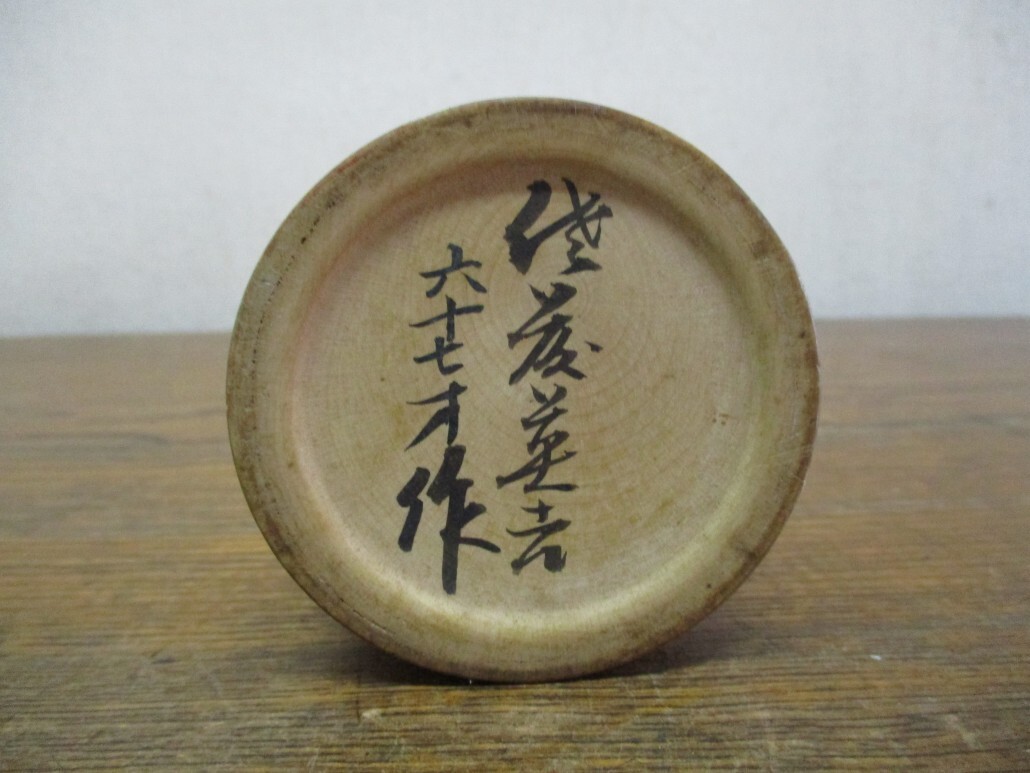 佐藤英吉
六十七才作